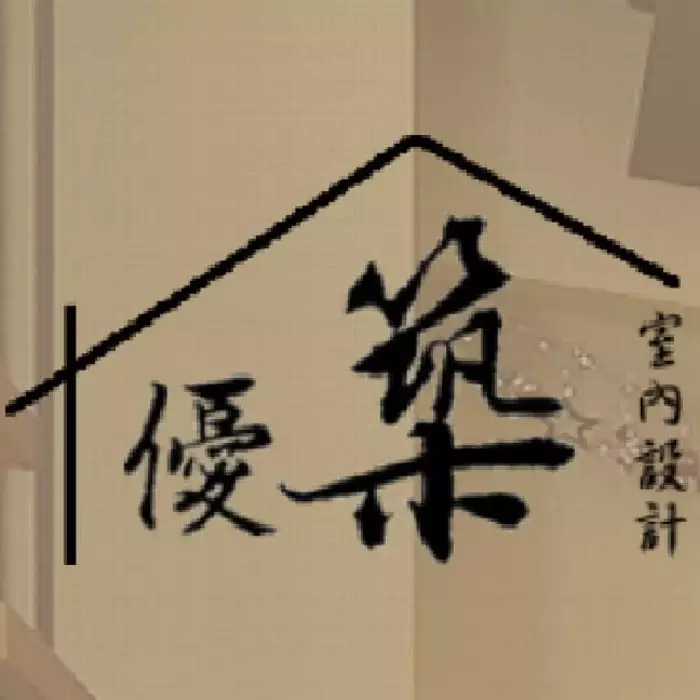 優築
室內設計